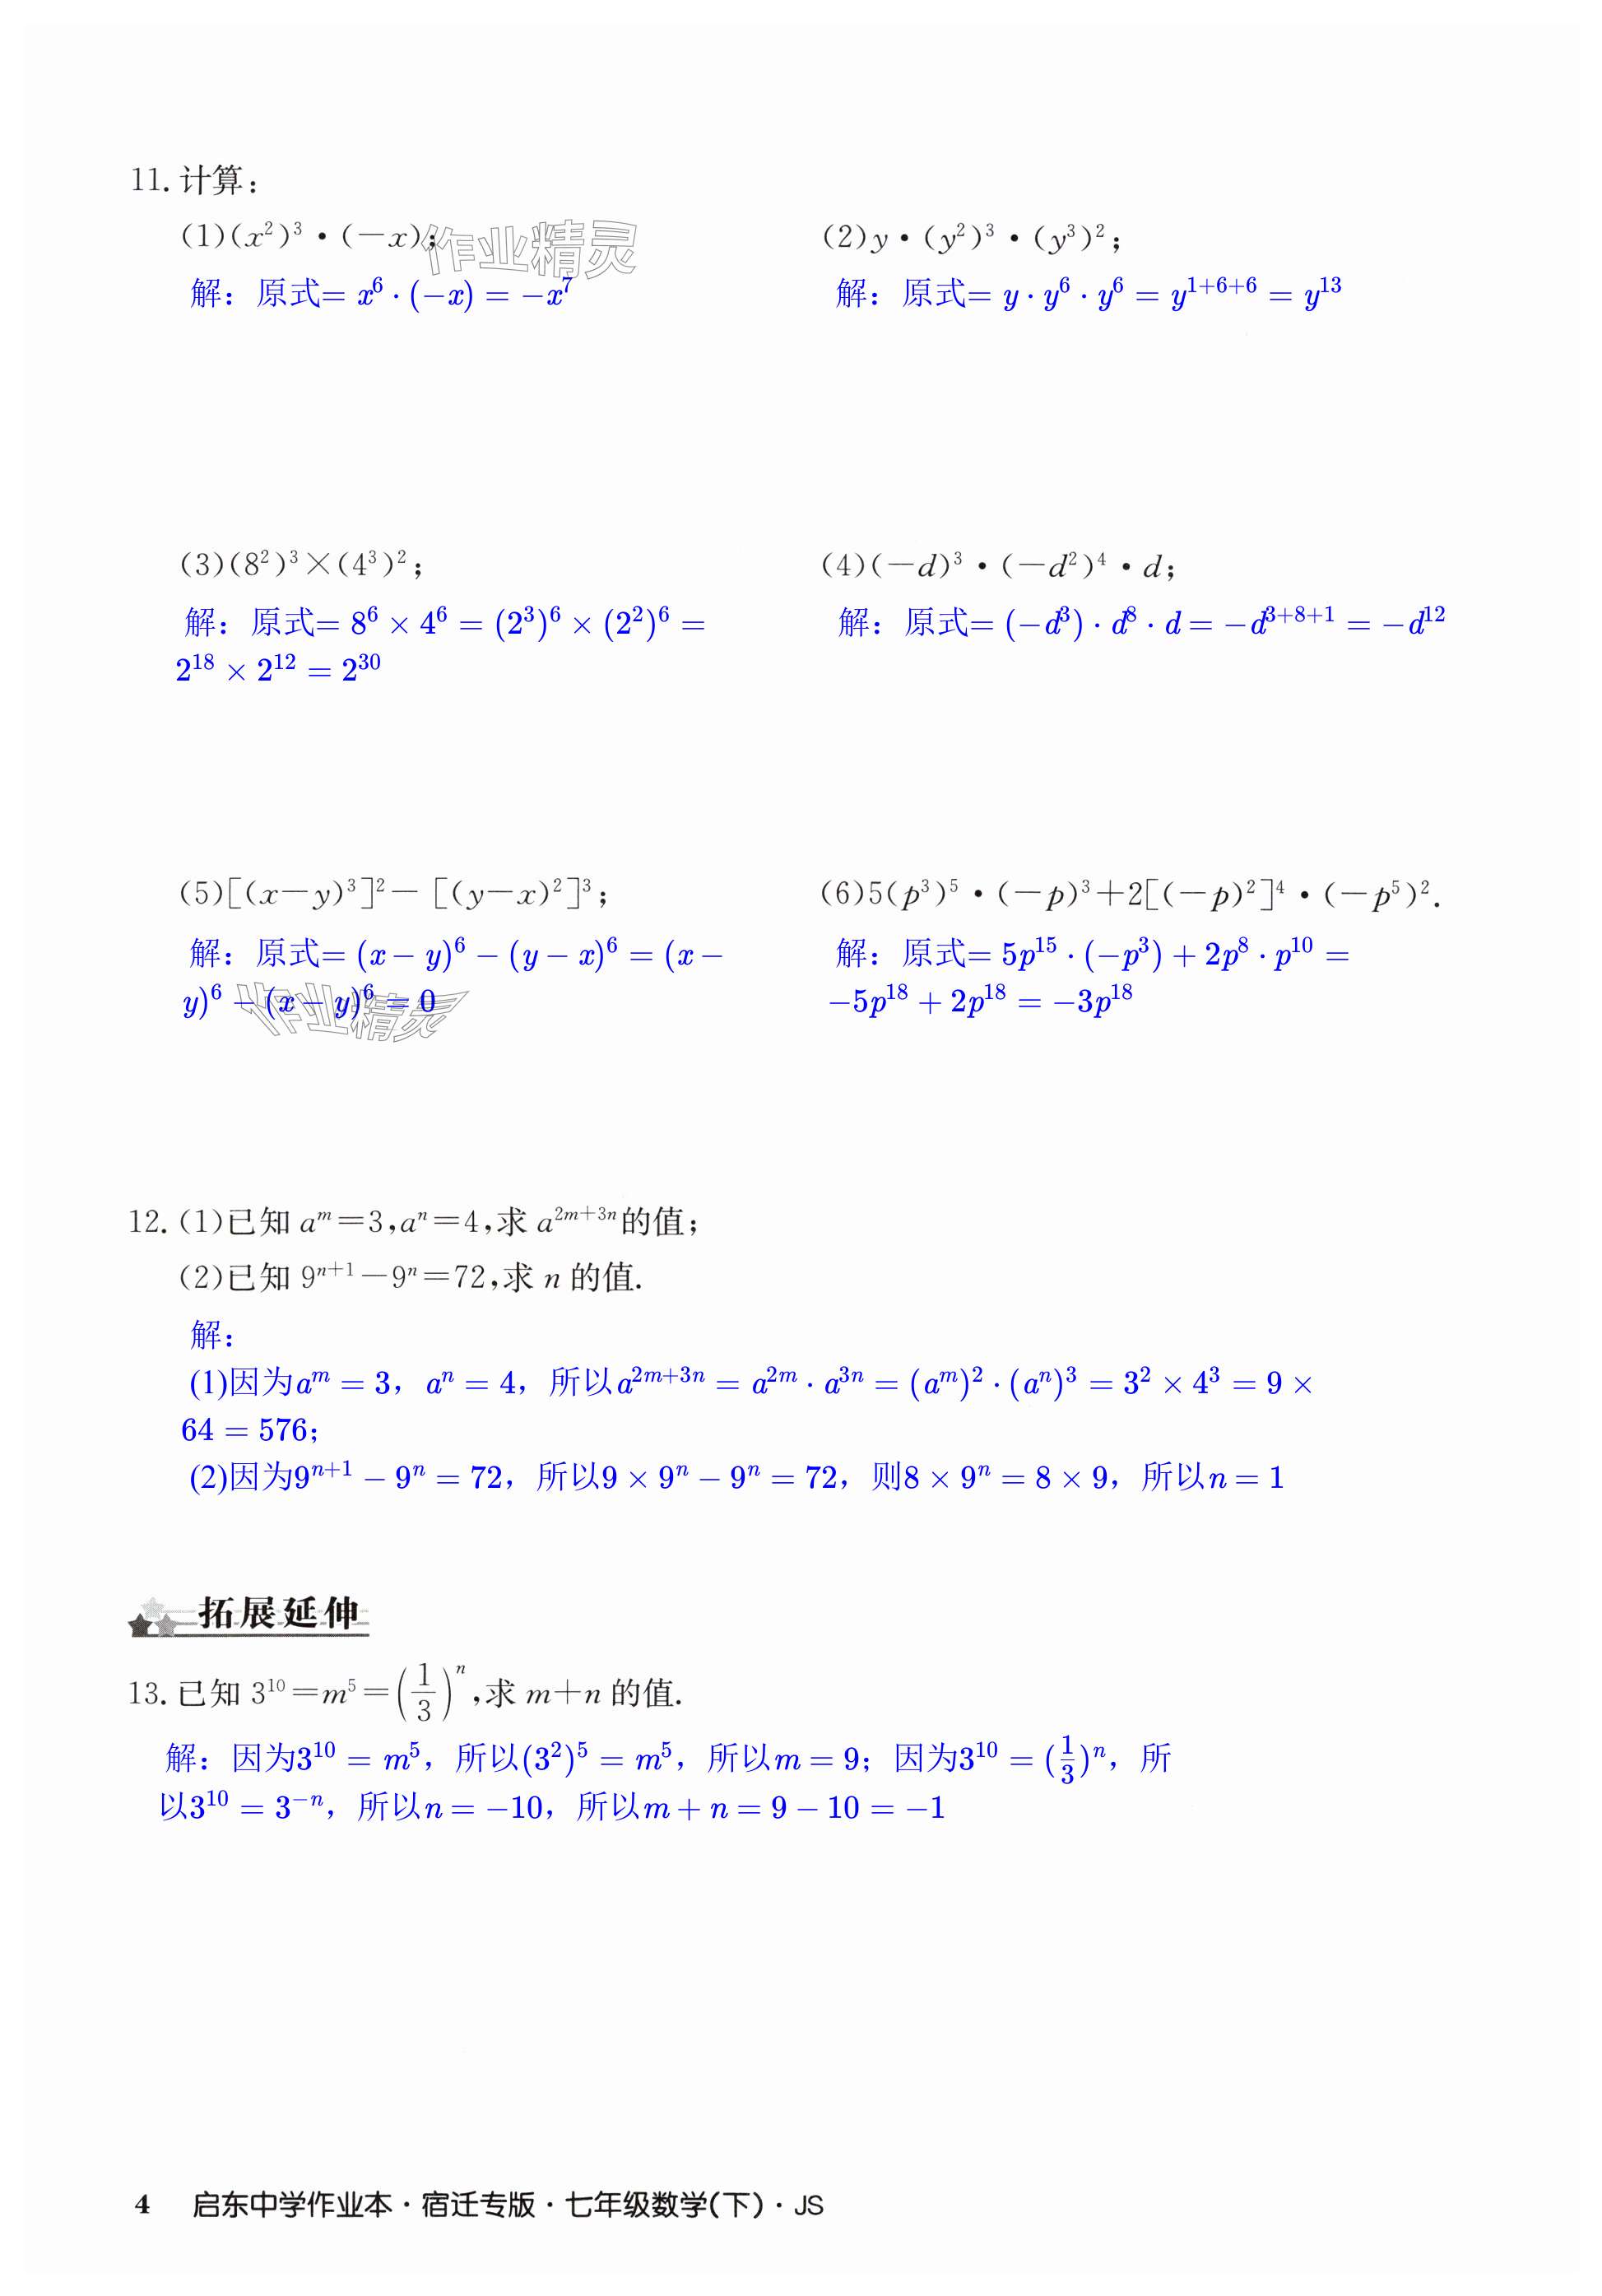 11. 计算:
(1)(x²)³·(-x);
(2)y·(y²)³·(y³)²;
解:原式= x⁶·(-x) = -x⁷
解:原式= y·y⁶·y⁶ = y¹⁺⁶⁺⁶ = y¹³
作业精灵
(3)(8²)³×(4³)²;
(4)(-d)³·(-d²)⁴·d;
解:原式= 8⁶ × 4⁶ = (2³)⁶ × (2²)⁶ =
2¹⁸ × 2¹² = 2³⁰
解:原式= (-d³)·d⁸·d = -d³⁺⁸⁺¹ = -d¹²
(5)[(x-y)³]²-[(y-x)²]³;
(6)5(p³)⁵·(-p)³+2[(-p)²]⁴·(-p⁵)².
解:原式= (x - y)⁶ - (y - x)⁶ = (x -
y)⁶ - (x - y)⁶ = 0
作业精灵
解:原式= 5p¹⁵·(-p³) + 2p⁸·p¹⁰ =
-5p¹⁸ + 2p¹⁸ = -3p¹⁸
12. (1)已知 aᵐ=3,aⁿ=4,求 a²ᵐ⁺³ⁿ的值;
(2)已知 9ⁿ⁺¹-9ⁿ=72,求 n 的值.
解:
(1)因为aᵐ = 3，aⁿ = 4，所以a²ᵐ⁺³ⁿ = a²ᵐ·a³ⁿ = (aᵐ)²·(aⁿ)³ = 3² × 4³ = 9 ×
64 = 576;
(2)因为9ⁿ⁺¹ - 9ⁿ = 72，所以9 × 9ⁿ - 9ⁿ = 72，则8 × 9ⁿ = 8 × 9，所以n = 1
拓展延伸
13. 已知 3¹⁰=m⁵=(1/3)ⁿ,求 m+n 的值.
解:因为3¹⁰ = m⁵，所以(3²)⁵ = m⁵，所以m = 9;因为3¹⁰ = (1/3)ⁿ，所
以3¹⁰ = 3⁻ⁿ，所以n = -10，所以m + n = 9 - 10 = -1
4 启东中学作业本·宿迁专版·七年级数学(下)·JS